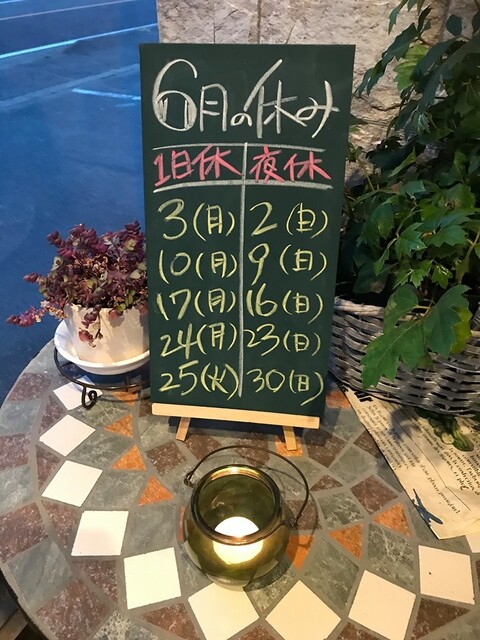 6月の休み
1日休 夜休
3(月) 2(日)
10(月) 9(日)
17(月) 16(日)
24(月) 23(日)
25(火) 30(日)